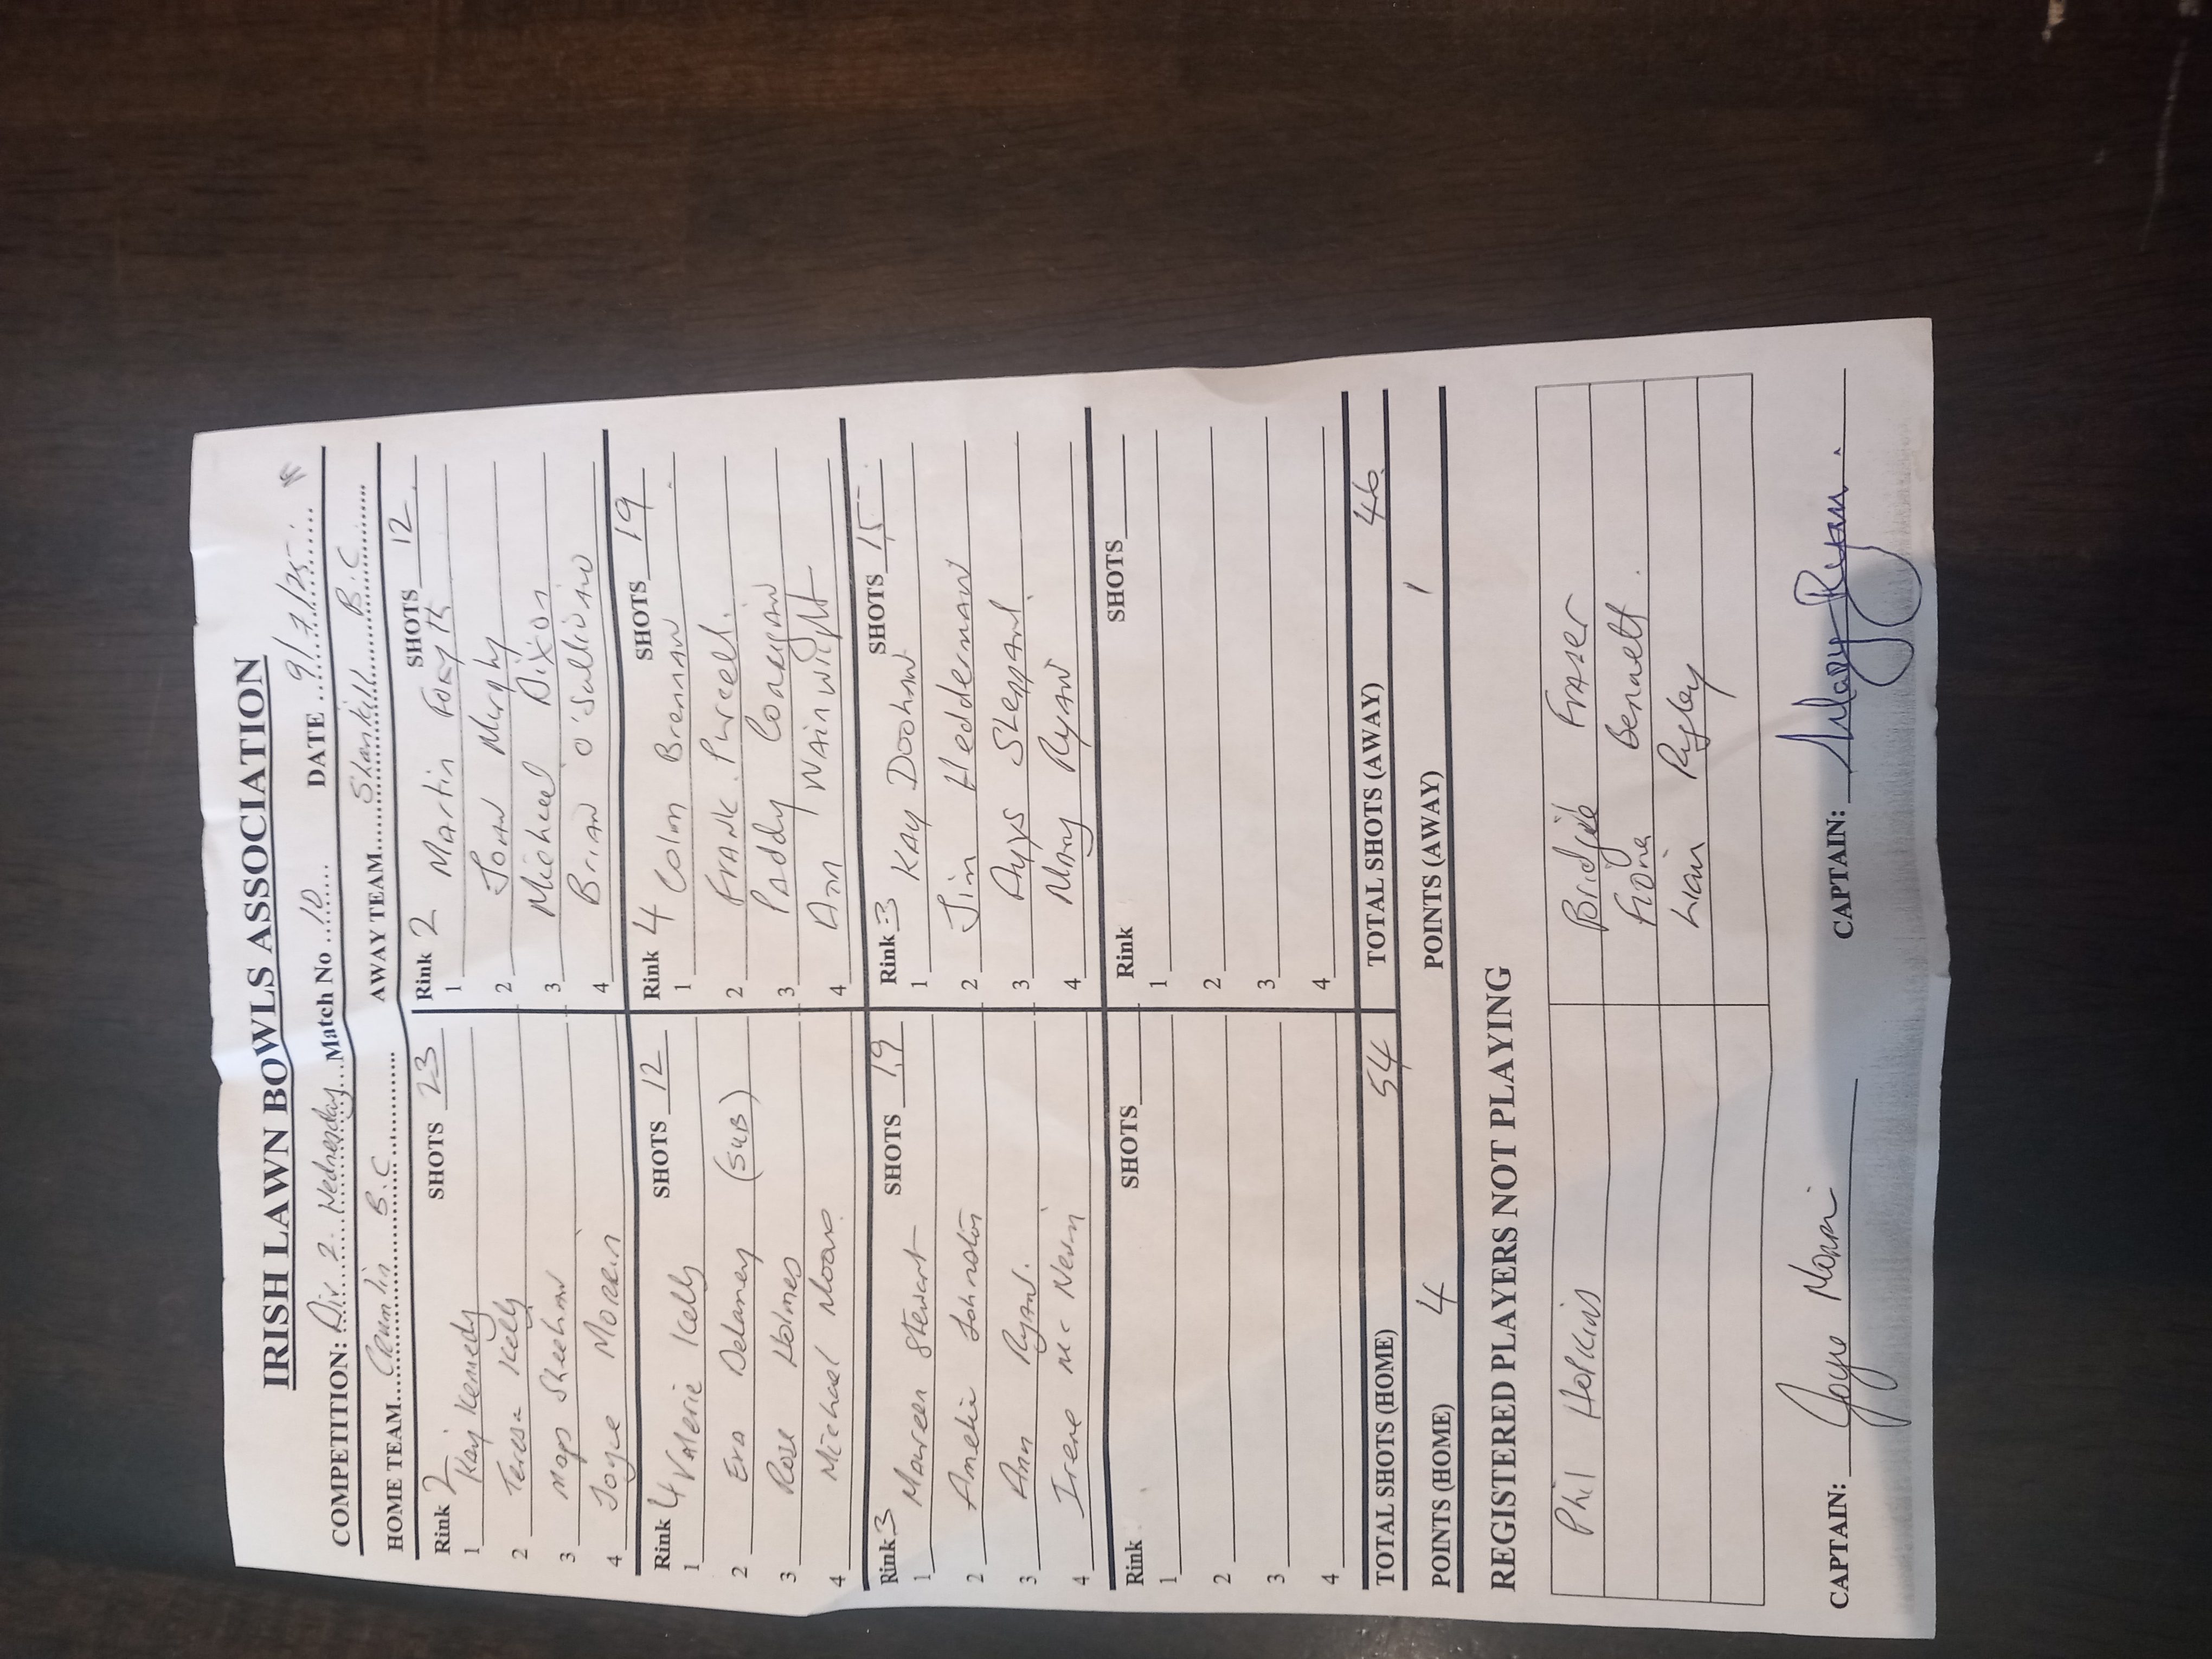 IRISH LAWN BOWLS ASSOCIATION
COMPETITION: Div 2. Wednesday... Match No ..10...... DATE ..9/7/25.....
HOME TEAM....Crumlin B.C............ AWAY TEAM......Shankill B.C.........
Rink 2 SHOTS 23 Rink 2 SHOTS 12
1 Kay Kennedy 1 Martin
2 Teresa Kelly 2 Joan Murphy
3 Mags Sheehan 3 Micheal Dixon
4 Joyce Morrin 4 Brian O'Sullivan
Rink 4 SHOTS 12 Rink 4 SHOTS 19
1 Valerie Kelly 1 Colm Brennan
2 Eva Delaney (SUB) 2 Frank Purcell.
3 Rose Holmes 3 Paddy Corrigan
4 Michael 4 Ann Wainwright
Rink 3 SHOTS 19 Rink 3 SHOTS 15
1 Maureen Stewart 1 Kay Doohan
2 Amelia Johnston 2 Jim Hedderman
3 Ann Ryan. 3 Shepard
4 Irene Mc Nevin 4 Mary Ryan
Rink SHOTS Rink SHOTS
1 1
2 2
3 3
4 4
TOTAL SHOTS (HOME) 54 TOTAL SHOTS (AWAY) 46
POINTS (HOME) 4 POINTS (AWAY) 1
REGISTERED PLAYERS NOT PLAYING
Phil Hopkins Bridgide Fraser
Fiona Bennett.
Liain
CAPTAIN: Joyce Morrin CAPTAIN: Mary Ryan.